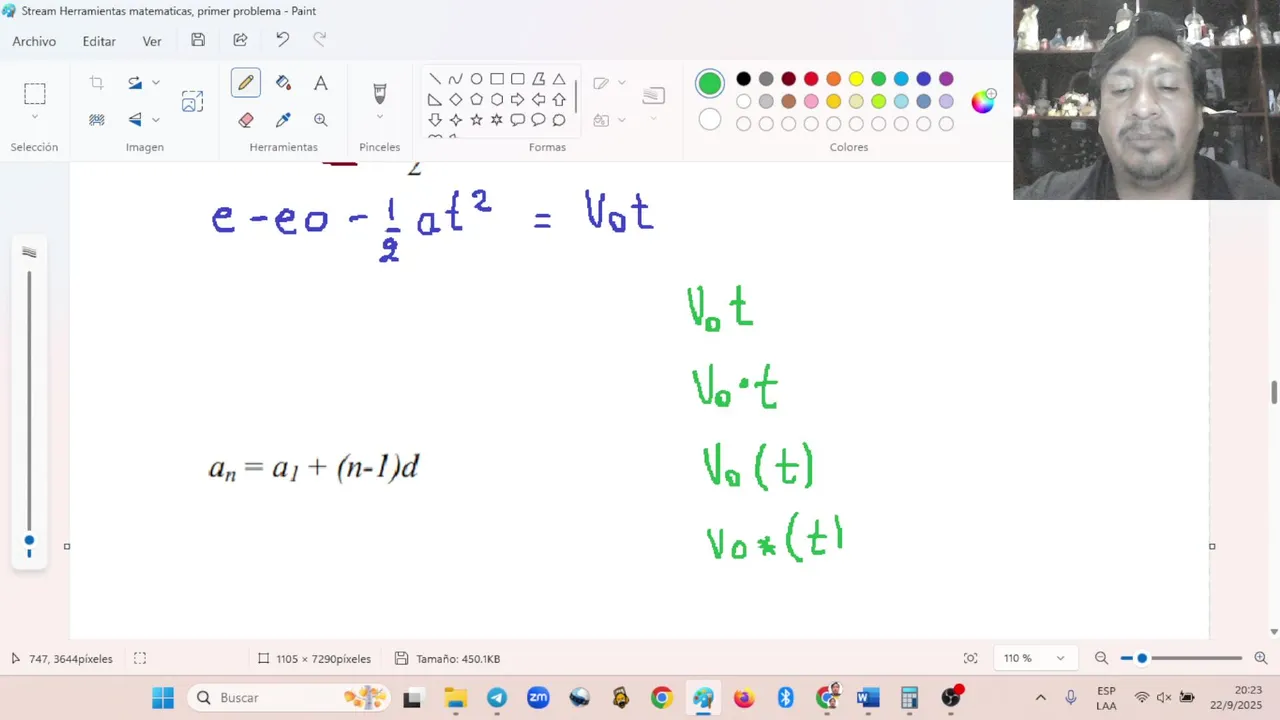 Stream Herramientas matematicas, primer problema - Paint
Archivo Editar Ver
Selección Imagen Herramientas Pinceles Formas Colores
2
e - eo - 1/2 at² = V₀t
V₀ t
V₀ · t
aₙ = a₁ + (n-1)d
V₀ (t)
V₀ * (t)
747, 3644píxeles 1105 × 7290píxeles Tamaño: 450.1KB 110 %
Buscar
zm
ESP
LAA
20:23
22/9/2025